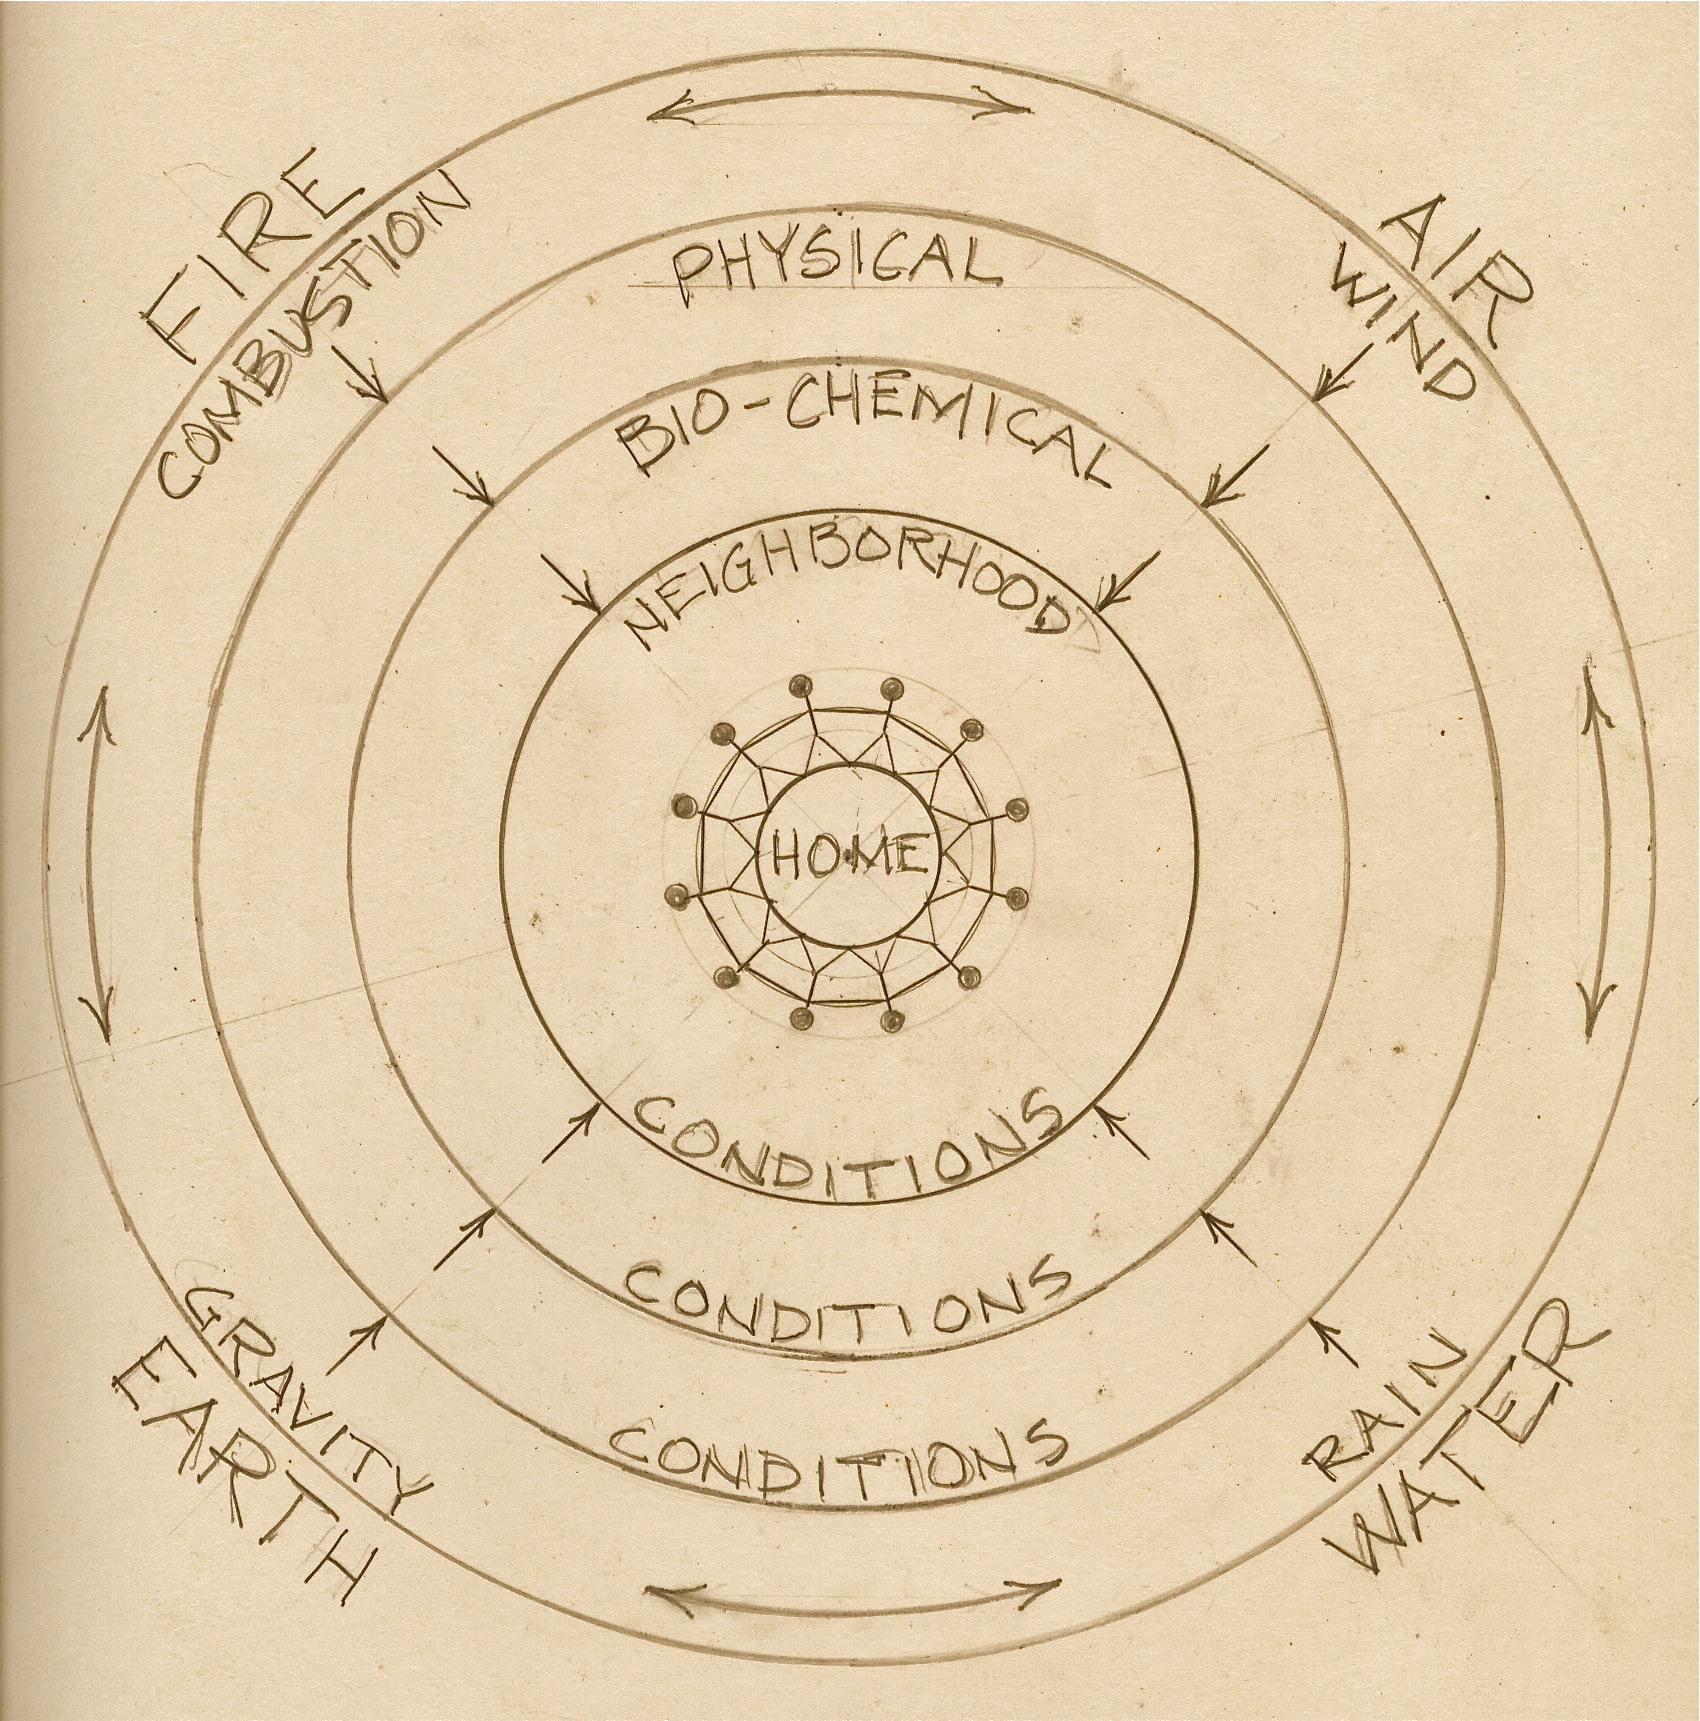 FIRE
COMBUSTION
AIR
WIND
PHYSICAL
BIO-CHEMICAL
NEIGHBORHOOD
HOME
CONDITIONS
CONDITIONS
CONDITIONS
GRAVITY
EARTH
RAIN
WATER